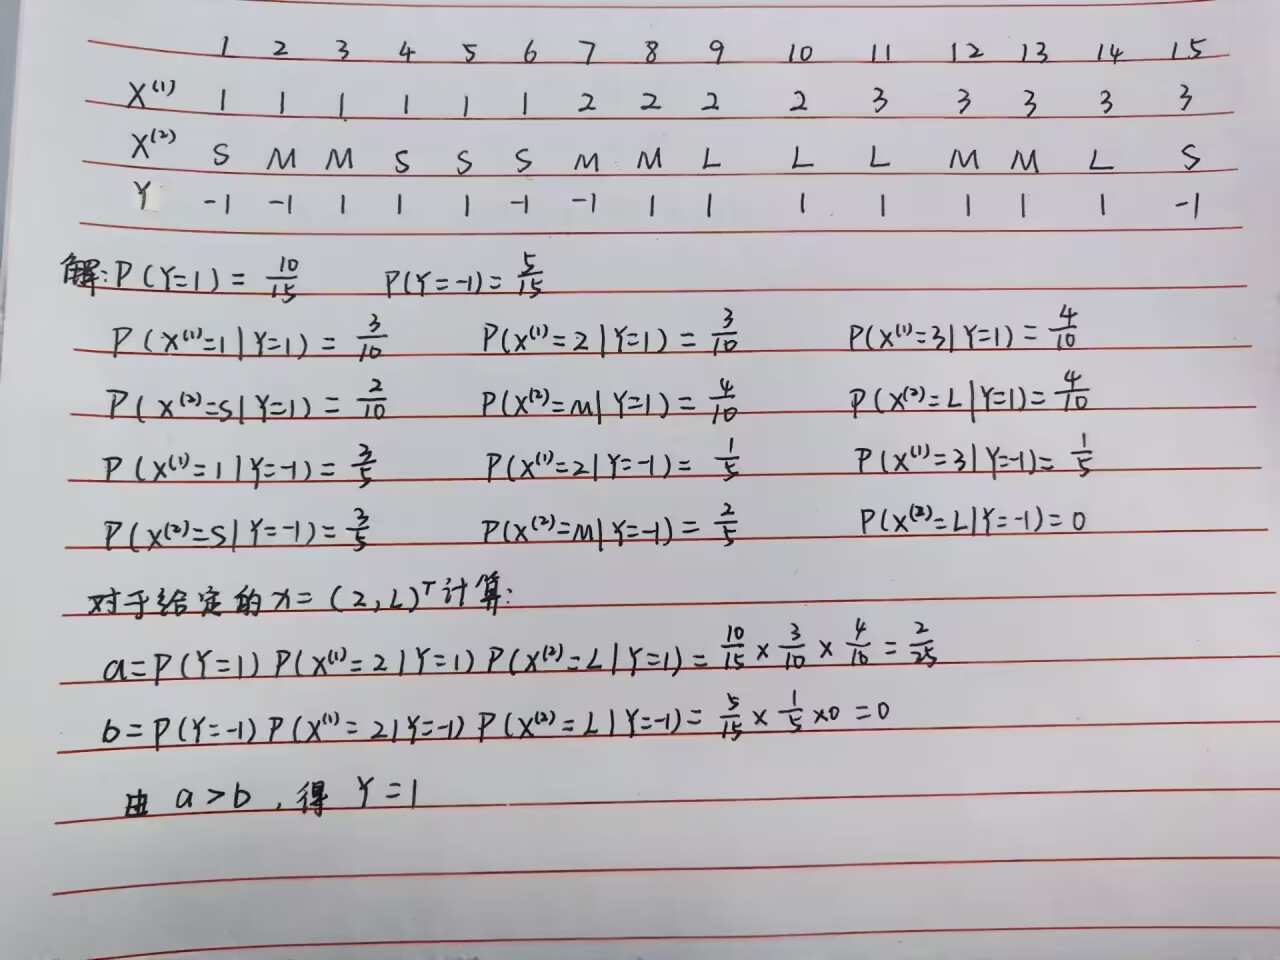 1 2 3 4 5 6 7 8 9 10 11 12 13 14 15
X⁽¹⁾ 1 1 1 1 1 1 2 2 2 2 3 3 3 3 3
X⁽²⁾ S M M S S S M M L L L M M L S
Y -1 -1 1 1 1 -1 -1 1 1 1 1 1 1 1 -1
解: P(Y=1) = 10/15 P(Y=-1) = 5/15
P(X⁽¹⁾=1|Y=1) = 3/10 P(X⁽¹⁾=2|Y=1) = 3/10 P(X⁽¹⁾=3|Y=1) = 4/10
P(X⁽²⁾=S|Y=1) = 2/10 P(X⁽²⁾=M|Y=1) = 4/10 P(X⁽²⁾=L|Y=1) = 4/10
P(X⁽¹⁾=1|Y=-1) = 3/5 P(X⁽¹⁾=2|Y=-1) = 1/5 P(X⁽¹⁾=3|Y=-1) = 1/5
P(X⁽²⁾=S|Y=-1) = 3/5 P(X⁽²⁾=M|Y=-1) = 2/5 P(X⁽²⁾=L|Y=-1) = 0
对于给定的x=(2,L)ᵀ计算:
a=P(Y=1)P(X⁽¹⁾=2|Y=1)P(X⁽²⁾=L|Y=1) = 10/15 × 3/10 × 4/10 = 2/25
b=P(Y=-1)P(X⁽¹⁾=2|Y=-1)P(X⁽²⁾=L|Y=-1) = 5/15 × 1/5 ×0 =0
由 a>b , 得 Y=1